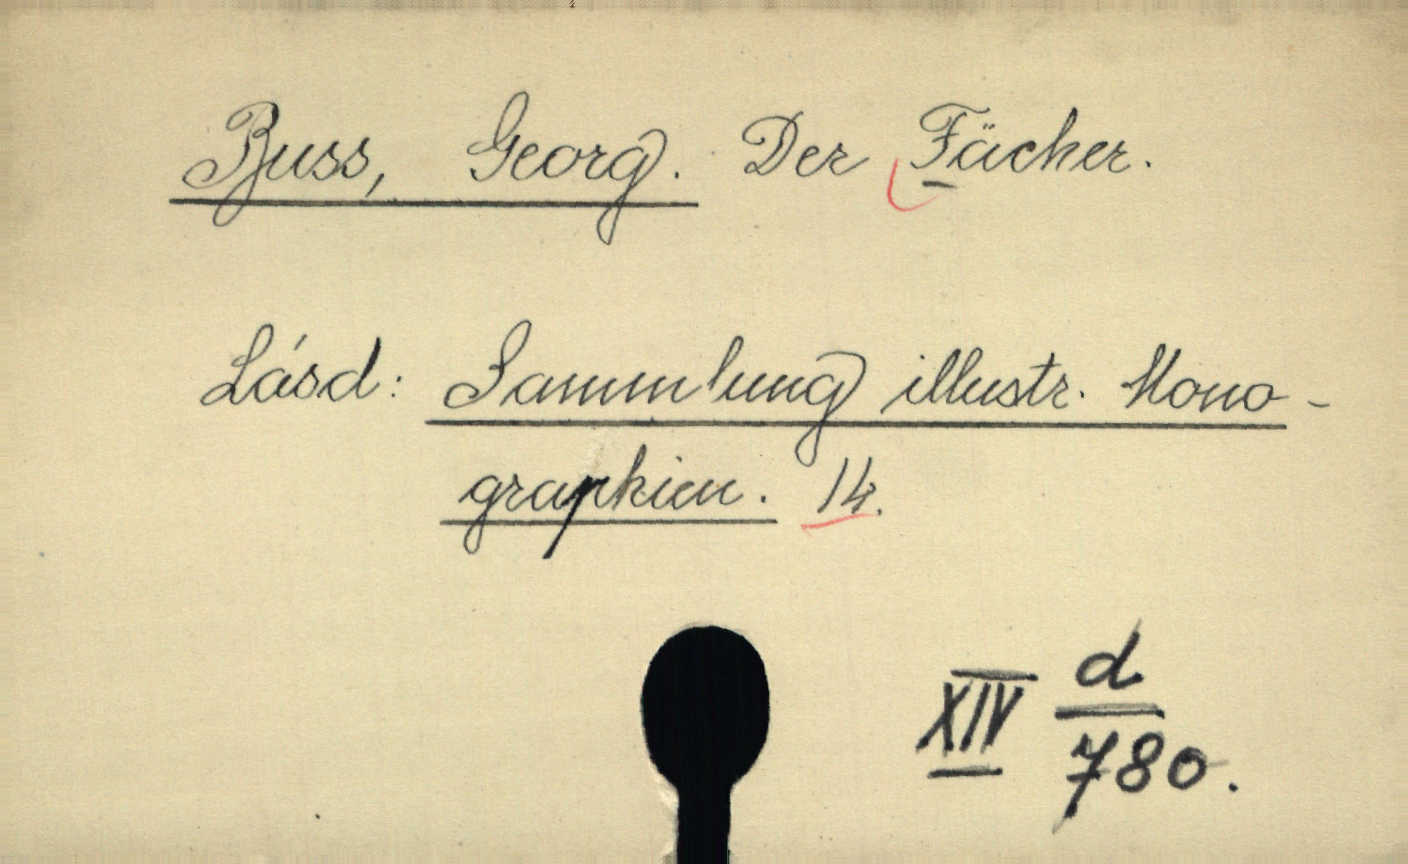 Buss, Georg. Der Fächer.
Lásd: Sammlung illustr. Mono-
graphien. 14.
XIV d
780.